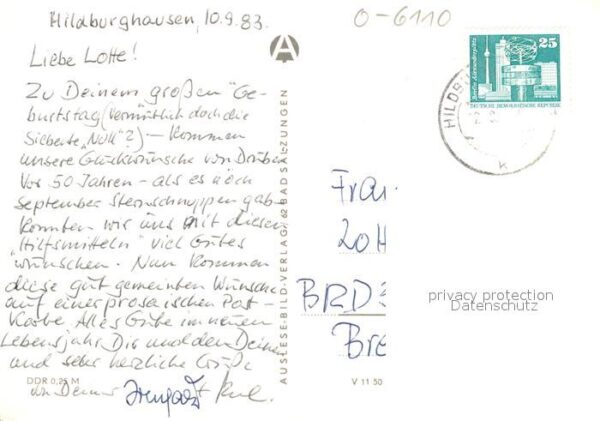 Hildburghausen, 10.9.83.
O-6110
Liebe Lotte!
Zu Deinem großen "Ge-
burtstag (Vermutlich doch die
Siebente "Null"?) — kommen
unsere Glückwünsche von Drüben
Vor 50 Jahren - als es noch
September Sternschnuppen gab -
konnten wir uns mit diesen
"Hilfsmitteln" viel Gutes
wünschen. Nun kommen
diese gut gemeinten Wünsche
auf einer prosaischen Post-
karte. Alles Gute im neuen
Lebensjahr, Dir und den Deinen
und sehr herzliche Grüße
von Deinen
DDR 0,25 M
AUSLESE-BILD-VERLAG 62 BAD SALZUNGEN
V 11 50
25
Berlin, Alexanderplatz
DEUTSCHE DEMOKRATISCHE REPUBLIK
HILDB
k
Frau
Loh
BRD
Bre
privacy protection
Datenschutz